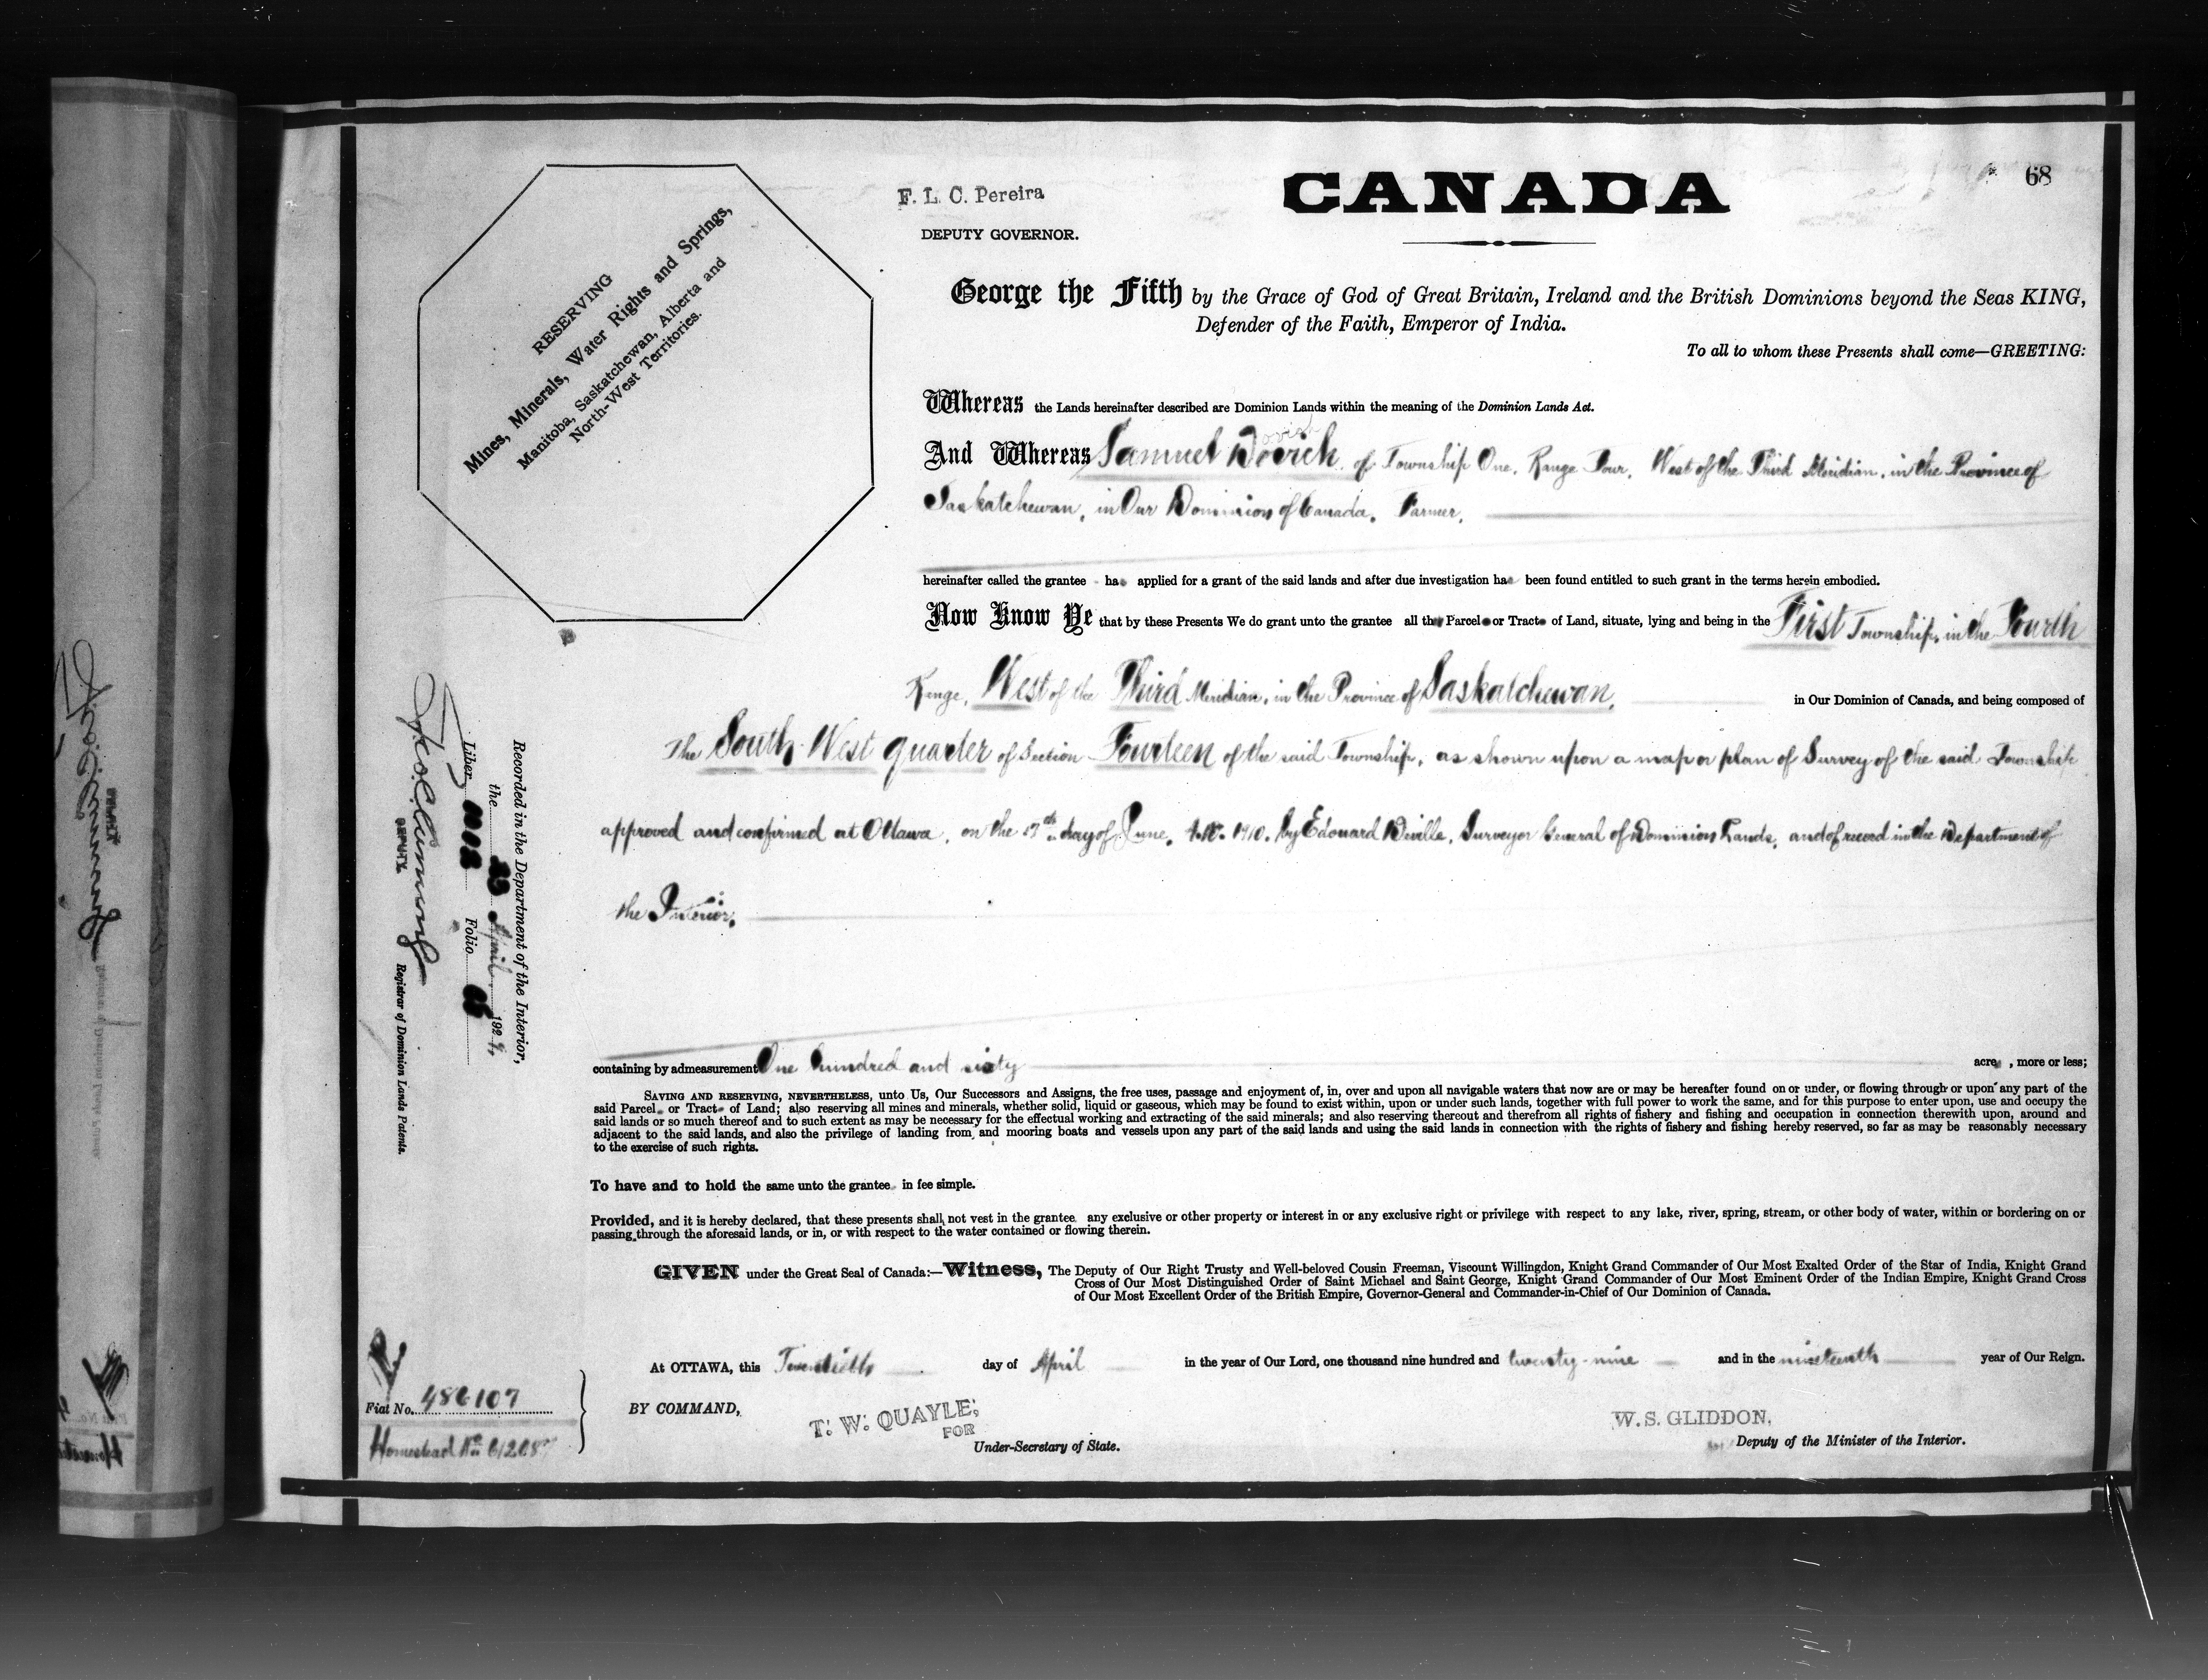 68
F. L. C. Pereira
DEPUTY GOVERNOR.
CANADA
RESERVING
Mines, Minerals, Water Rights and Springs,
Manitoba, Saskatchewan, Alberta and
North-West Territories.
George the Fifth by the Grace of God of Great Britain, Ireland and the British Dominions beyond the Seas KING,
Defender of the Faith, Emperor of India.
To all to whom these Presents shall come—GREETING:
Whereas the Lands hereinafter described are Dominion Lands within the meaning of the Dominion Lands Act.
And Whereas Samuel of Township One, Range Four, West of the Third Meridian, in the Province of
Saskatchewan, in Our Dominion of Canada, Farmer,
hereinafter called the grantee has applied for a grant of the said lands and after due investigation has been found entitled to such grant in the terms herein embodied.
Now Know Ye that by these Presents We do grant unto the grantee all that Parcel or Tract of Land, situate, lying and being in the First Township, in the Fourth
Range, West of the Third Meridian, in the Province of Saskatchewan, in Our Dominion of Canada, and being composed of
The South West quarter of Section Fourteen of the said Township, as shown upon a map or plan of Survey of the said Township
approved and confirmed at Ottawa, on the 17th day of June, A.D. 1910, by Edouard Deville, Surveyor General of Dominion Lands, and of record in the Department of
the Interior.
containing by admeasurement One hundred and sixty acres, more or less;
SAVING AND RESERVING, NEVERTHELESS, unto Us, Our Successors and Assigns, the free uses, passage and enjoyment of, in, over and upon all navigable waters that now are or may be hereafter found on or under, or flowing through or upon any part of the
said Parcel or Tract of Land; also reserving all mines and minerals, whether solid, liquid or gaseous, which may be found to exist within, upon or under such lands, together with full power to work the same, and for this purpose to enter upon, use and occupy the
said lands or so much thereof and to such extent as may be necessary for the effectual working and extracting of the said minerals; and also reserving thereout and therefrom all rights of fishery and fishing and occupation in connection therewith upon, around and
adjacent to the said lands, and also the privilege of landing from and mooring boats and vessels upon any part of the said lands and using the said lands in connection with the rights of fishery and fishing hereby reserved, so far as may be reasonably necessary
to the exercise of such rights.
To have and to hold the same unto the grantee in fee simple.
Provided, and it is hereby declared, that these presents shall not vest in the grantee any exclusive or other property or interest in or any exclusive right or privilege with respect to any lake, river, spring, stream, or other body of water, within or bordering on or
passing through the aforesaid lands, or in, or with respect to the water contained or flowing therein.
GIVEN under the Great Seal of Canada:—Witness, The Deputy of Our Right Trusty and Well-beloved Cousin Freeman, Viscount Willingdon, Knight Grand Commander of Our Most Exalted Order of the Star of India, Knight Grand
Cross of Our Most Distinguished Order of Saint Michael and Saint George, Knight Grand Commander of Our Most Eminent Order of the Indian Empire, Knight Grand Cross
of Our Most Excellent Order of the British Empire, Governor-General and Commander-in-Chief of Our Dominion of Canada.
At OTTAWA, this Twentieth day of April in the year of Our Lord, one thousand nine hundred and twenty-nine and in the nineteenth year of Our Reign.
BY COMMAND,
T. W. QUAYLE,
FOR
Under-Secretary of State.
W. S. GLIDDON,
Deputy of the Minister of the Interior.
Recorded in the Department of the Interior,
the 23 April 1929,
Liber Folio
DEPUTY
Registrar of Dominion Lands Patents.
Fiat No. 486107
Homestead No.